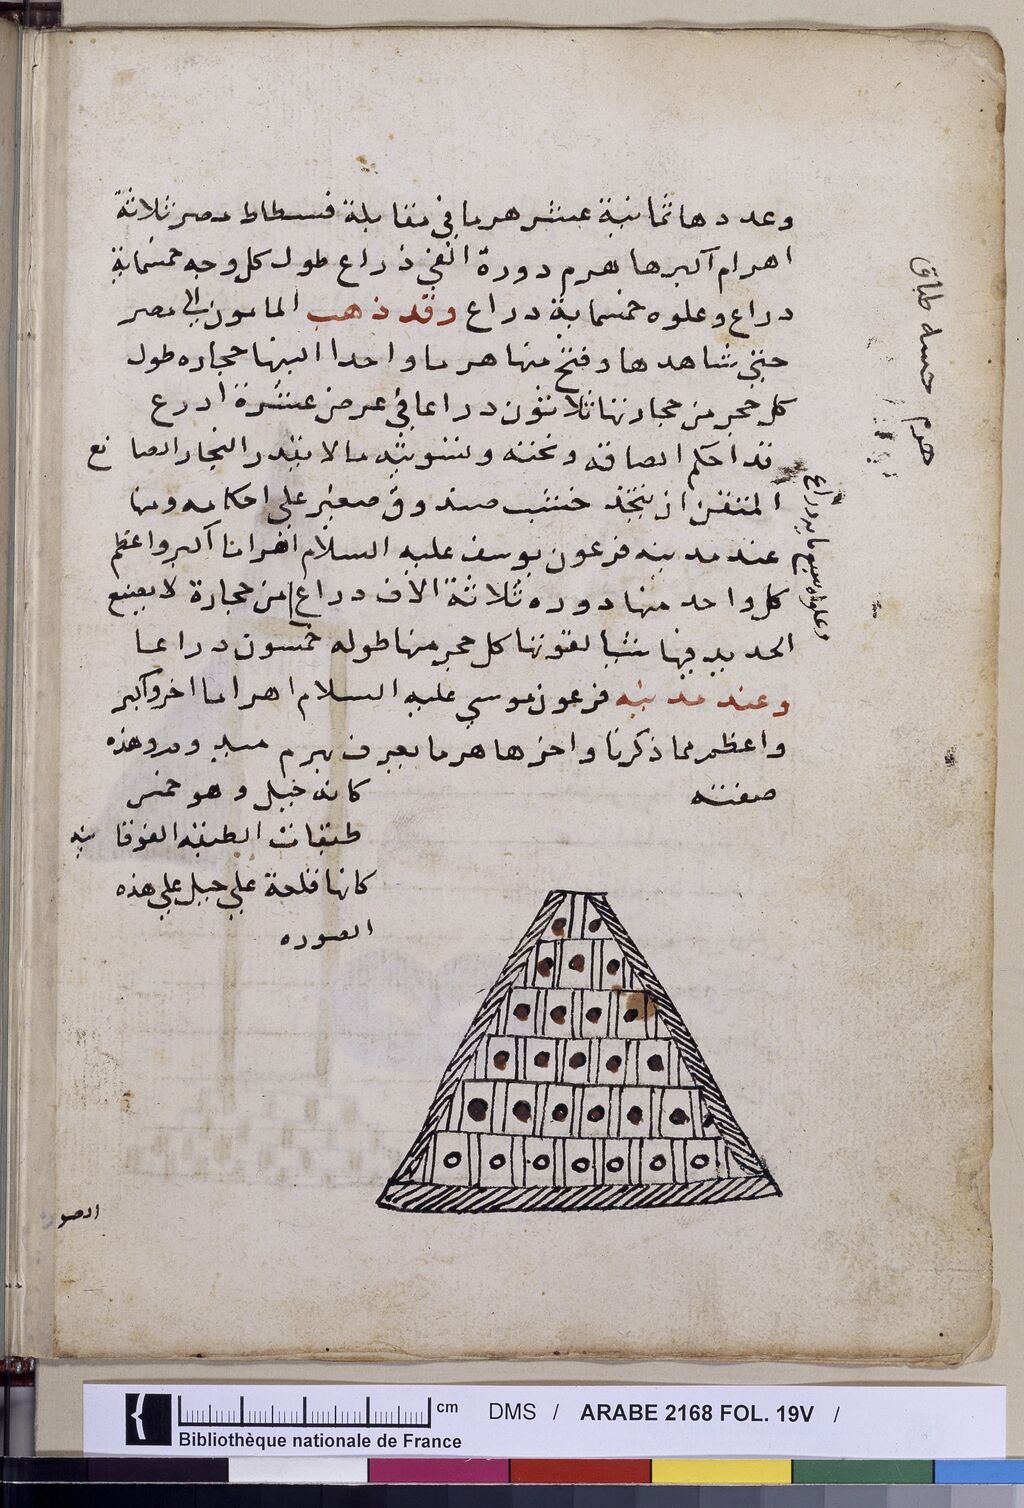 وعددها ثمانية عشر هرما في مقابلة فسطاط مصر ثلاثة
اهرام اكبرها هرم دورة الفي ذراع طول كل وجه خمسماية
دراع وعلوه خمسماية دراع وقد ذهب المامون الي مصر
حتي شاهدها وفتح منها هرما واحدا حجاره طول
كل حجر من حجارتها ثلاثون دراعا في عرض عشرة ادرع
قد احكم الصاقه ونحته وتسويته ما لا يقدر النجار الصانع
المتقن ان يتخذ خشب صندوق صغير علي احكامه ومنها
عند مدينه فرعون يوسف عليه السلام اهراما اكبر واعظم
كل واحد منها دوره ثلاثة الاف دراع من حجارة لا يصنع
الحديد فيها شيا لقوتها كل حجر منها طوله خمسون دراعا
وعند مدينه فرعون موسي عليه السلام اهراما اخر واكبر
واعظم مما ذكرنا واخرها هرما يعرف بهرم ميدوم وهذه
صفته
كانه جبل وهو خمس
طبقات الطبقه الفوقانيه
كانها قلعة علي جبل علي هذه
الصوره
وعلوه سبع مايه دراع
هرم خمسه طباق
الصوره
cm
DMS / ARABE 2168 FOL. 19V /
Bibliothèque nationale de France